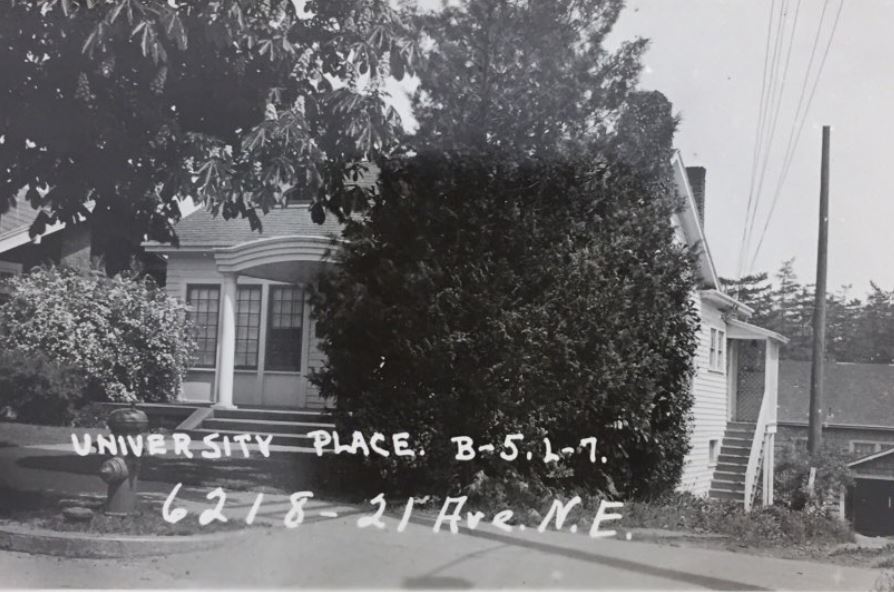 UNIVERSITY PLACE. B-5. L-7.
6218-21 Ave. N.E.